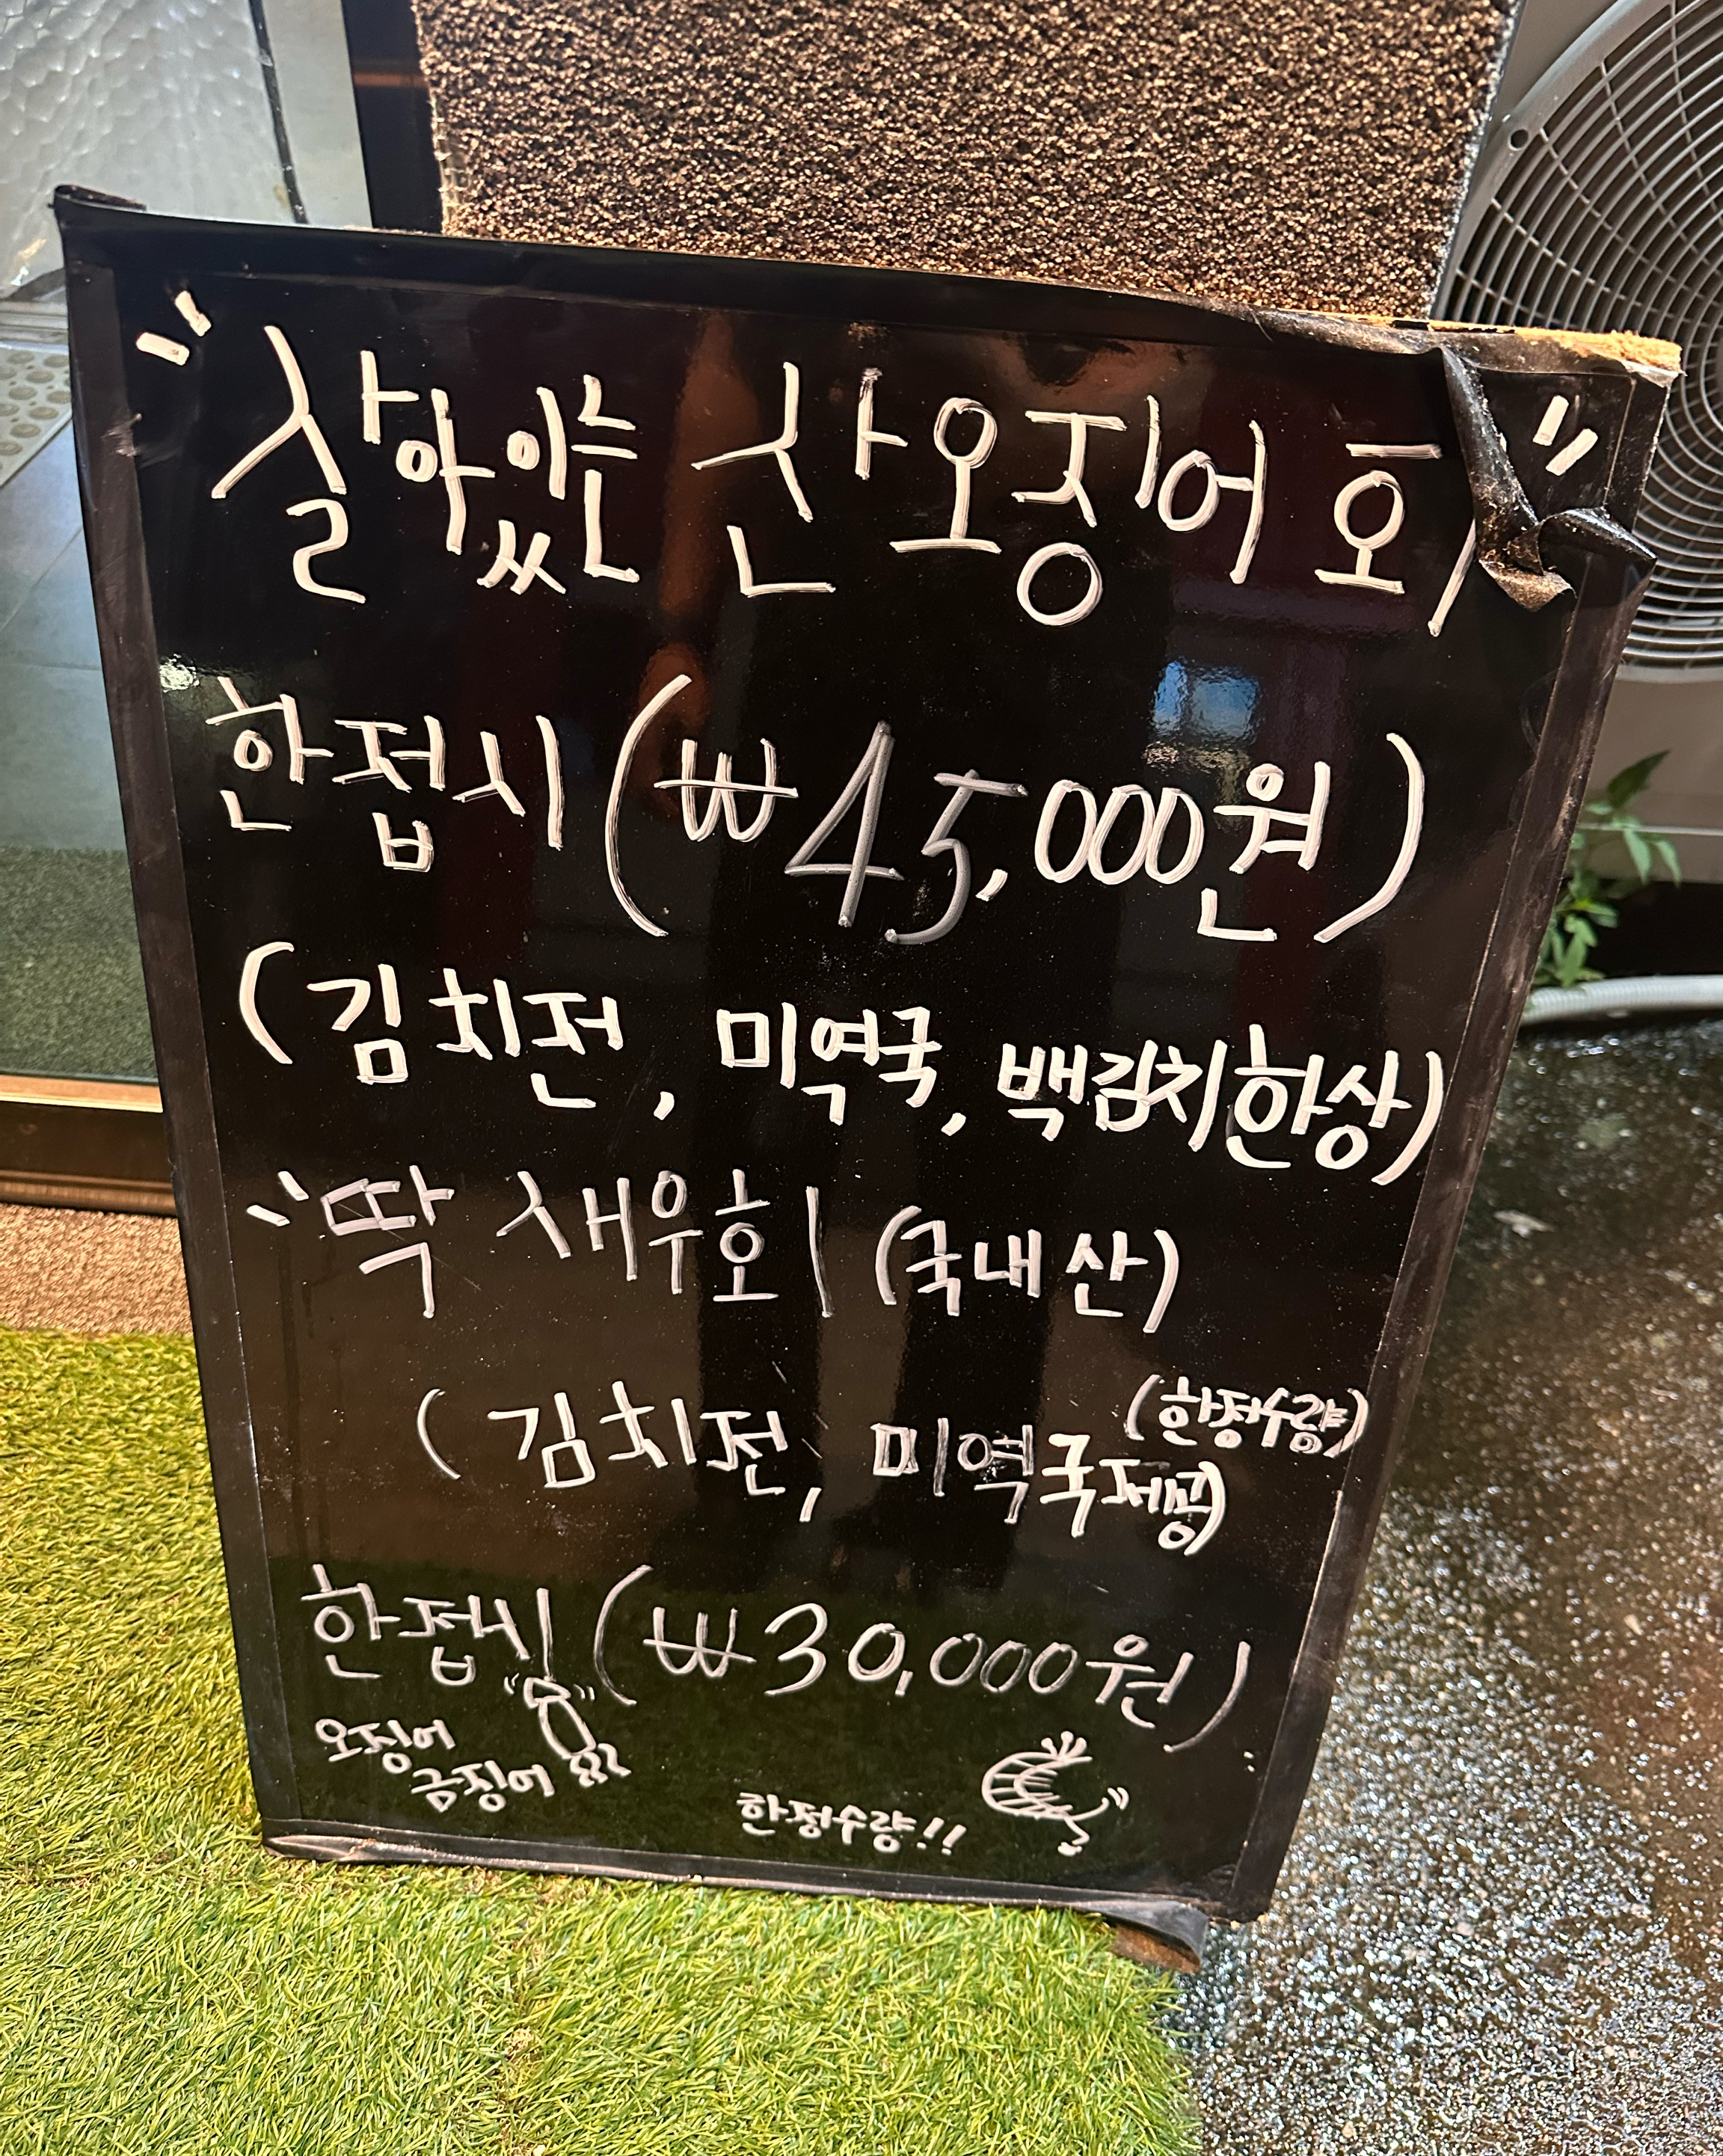 "살아있는 산 오징어 회"
한접시 (₩45,000원)
(김치전, 미역국, 백김치한상)
"딱 새우회 (국내산)
(한정수량)
(김치전, 미역국제공)
한접시 (₩30,000원)
오징어
금징어
한정수량!!